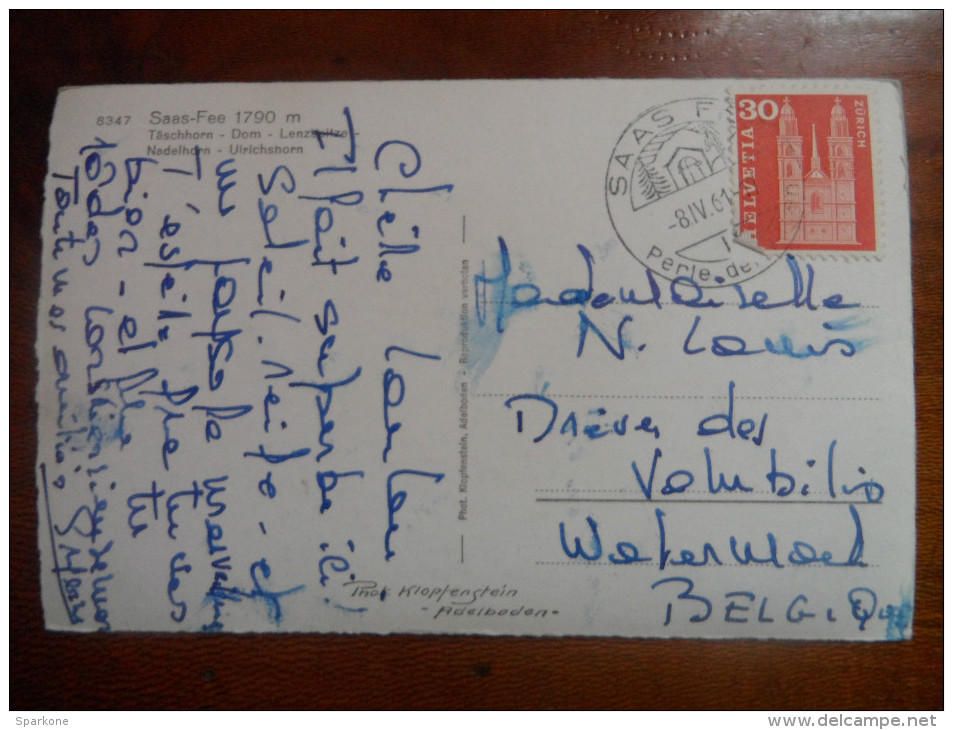 8347 Saas-Fee 1790 m
Täschhorn - Dom - Lenzspitze -
Nadelhorn - Ulrichshorn
Chère
Il fait superbe ici!
Soleil. Neige - et
un
J'espère que tu vas
bien - et que tu
Toutes nos amitiés
Phot. Klopfenstein, Adelboden - Reproduction verboten
Phot. Klopfenstein
- Adelboden -
SAAS F
-8.IV.61
Perle de
30
HELVETIA
ZÜRICH
Mademoiselle
N. Louis
Drève des
Volubilis
Watermael
BELGIQue
Sparkone
www.delcampe.net